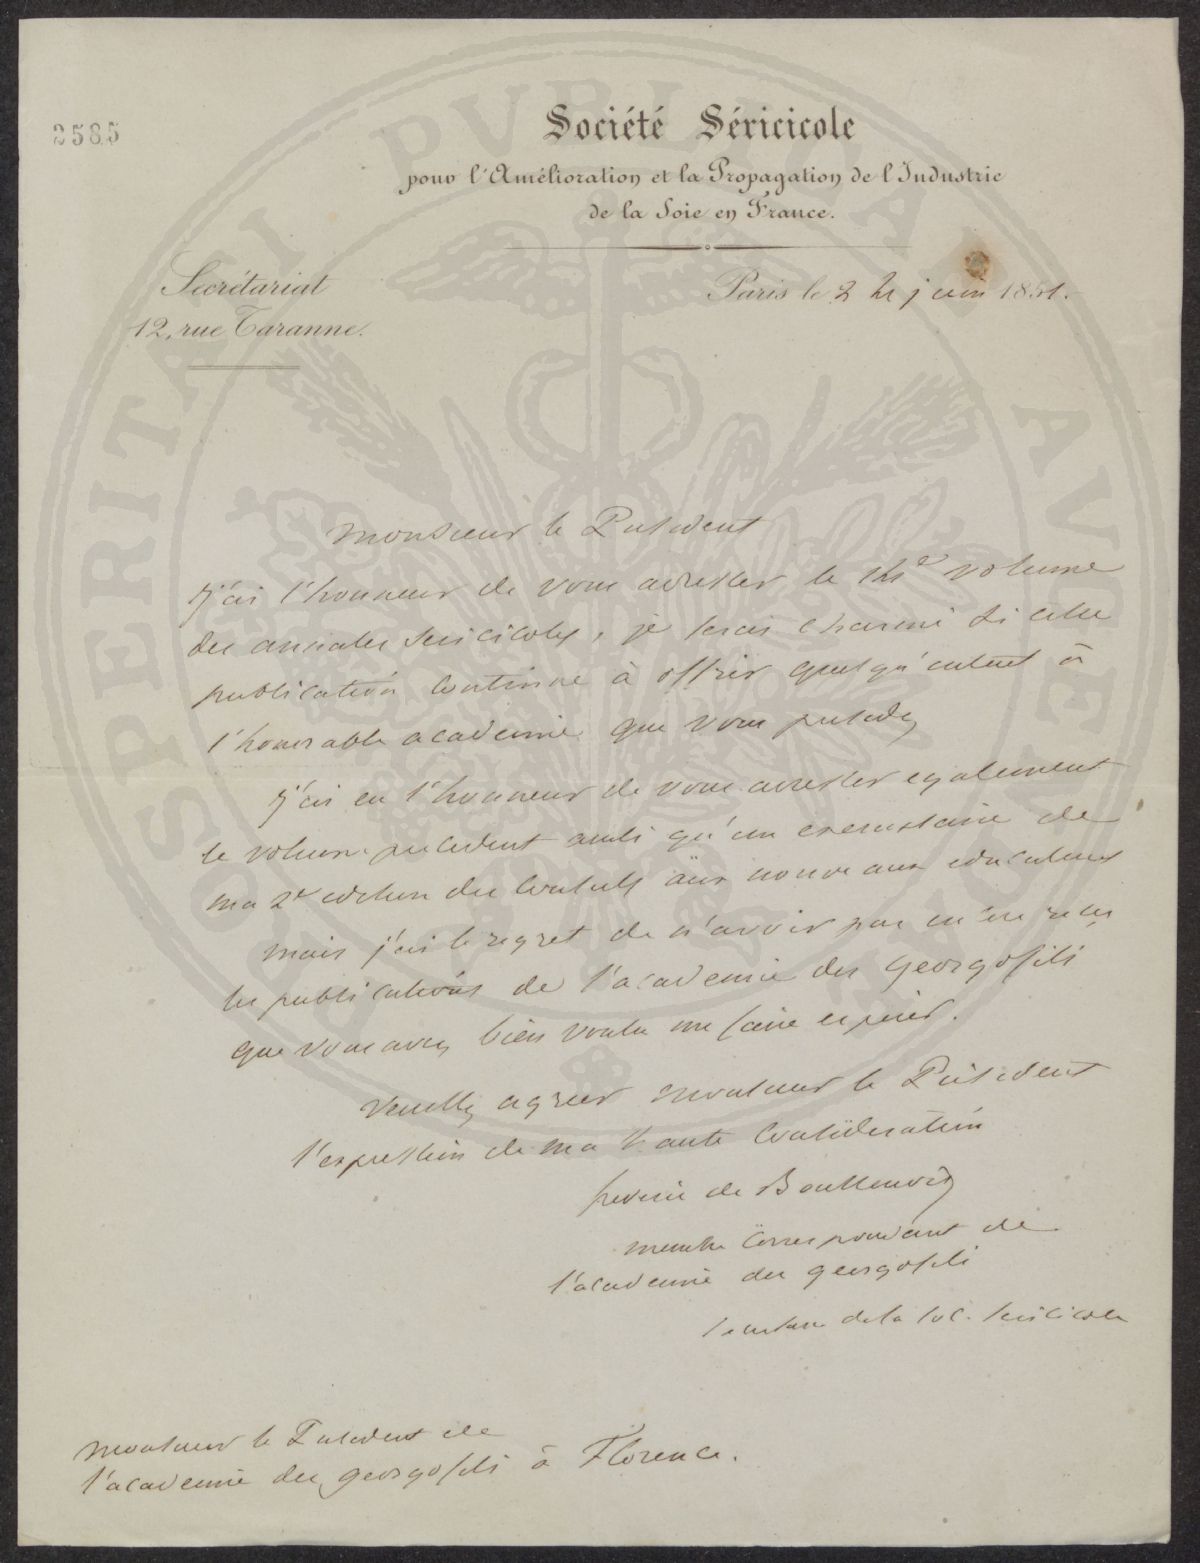 2585
Société Séricicole
pour l'Amélioration et la Propagation de l'Industrie
de la Soie en France.
Secrétariat
12, rue Taranne.
Paris le 24 juin 1851.
PROSPERITATI PVBLICAE AVGENDAE
Monsieur le President
j'ai l'honneur de vous adresser le 14e volume
des annales sericicoles, je serais charmé si cette
publication continue à offrir quelqu'interet à
l'honorable academie que vous presidez
j'ai eu l'honneur de vous adresser egalement
le volume precedent ainsi qu'un exemplaire de
ma 2e edition des Conseils aux nouveaux educateurs
mais j'ai le regret de n'avoir pas encore reçu
les publications de l'academie des georgofili
que vous avez bien voulu me faire esperer.
Veuillez agreer Monsieur le President
l'expression de ma haute Consideration
frederic de Boullenois
membre Correspondant de
l'academie des georgofili
secretaire de la soc. sericicole
Monsieur le President de
l'academie des georgofili à Florence.